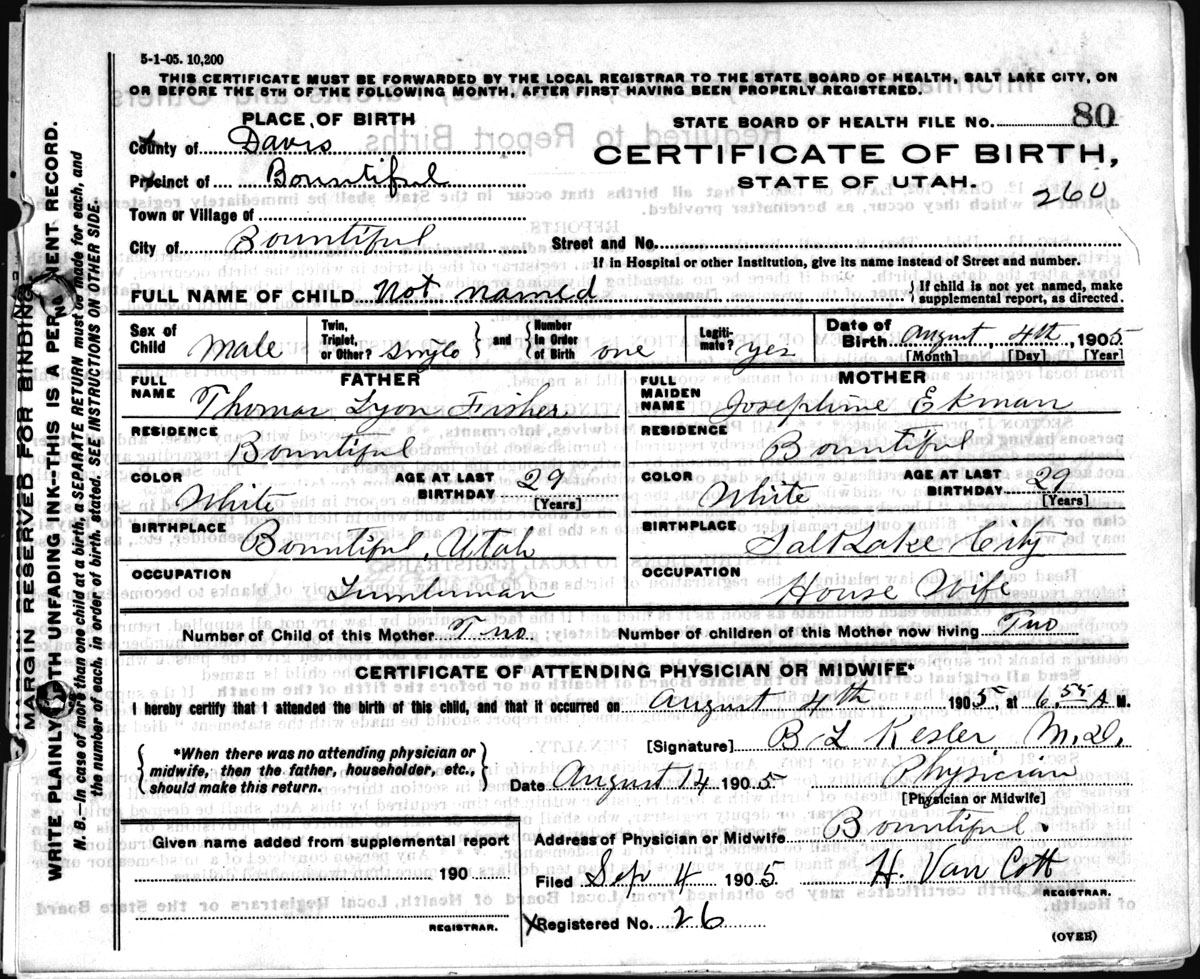 5-1-05. 10,200
THIS CERTIFICATE MUST BE FORWARDED BY THE LOCAL REGISTRAR TO THE STATE BOARD OF HEALTH, SALT LAKE CITY, ON
OR BEFORE THE 5TH OF THE FOLLOWING MONTH, AFTER FIRST HAVING BEEN PROPERLY REGISTERED.
PLACE OF BIRTH
STATE BOARD OF HEALTH FILE No. 80
County of Davis
CERTIFICATE OF BIRTH,
Precinct of Bountiful
STATE OF UTAH.
260
Town or Village of
City of Bountiful
Street and No.
If in Hospital or other Institution, give its name instead of Street and number.
FULL NAME OF CHILD Not named
{ If child is not yet named, make
supplemental report, as directed.
Sex of Child Male
Twin, Triplet, or Other? single } and { Number In Order of Birth one
Legiti-mate? yes
Date of Birth August 4th, 1905
[Month] [Day] [Year]
FATHER
MOTHER
FULL NAME Thomas Lyon Fisher
FULL MAIDEN NAME Josephine Ekman
RESIDENCE Bountiful
RESIDENCE Bountiful
COLOR White
AGE AT LAST BIRTHDAY 29 [Years]
COLOR White
AGE AT LAST BIRTHDAY 29 [Years]
BIRTHPLACE Bountiful, Utah
BIRTHPLACE Salt Lake City
OCCUPATION Lumberman
OCCUPATION House Wife
Number of Child of this Mother Two
Number of children of this Mother now living Two
CERTIFICATE OF ATTENDING PHYSICIAN OR MIDWIFE*
I hereby certify that I attended the birth of this child, and that it occurred on August 4th 1905, at 6.55 A M.
{ *When there was no attending physician or
midwife, then the father, householder, etc.,
should make this return. }
[Signature] B L Kesler M.D.
Date August 14 1905 Physician
[Physician or Midwife]
Given name added from supplemental report
190
REGISTRAR.
Address of Physician or Midwife Bountiful.
Filed Sep 4 1905 H. Van Cott
REGISTRAR.
X Registered No. 26
(OVER)
MARGIN RESERVED FOR BINDING
WRITE PLAINLY WITH UNFADING INK—THIS IS A PERMANENT RECORD.
N. B.—In case of more than one child at a birth, a SEPARATE RETURN must be made for each, and
the number of each, in order of birth, stated. SEE INSTRUCTIONS ON OTHER SIDE.